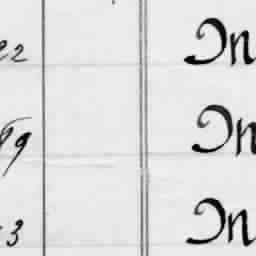 22 In
89 In
3 In